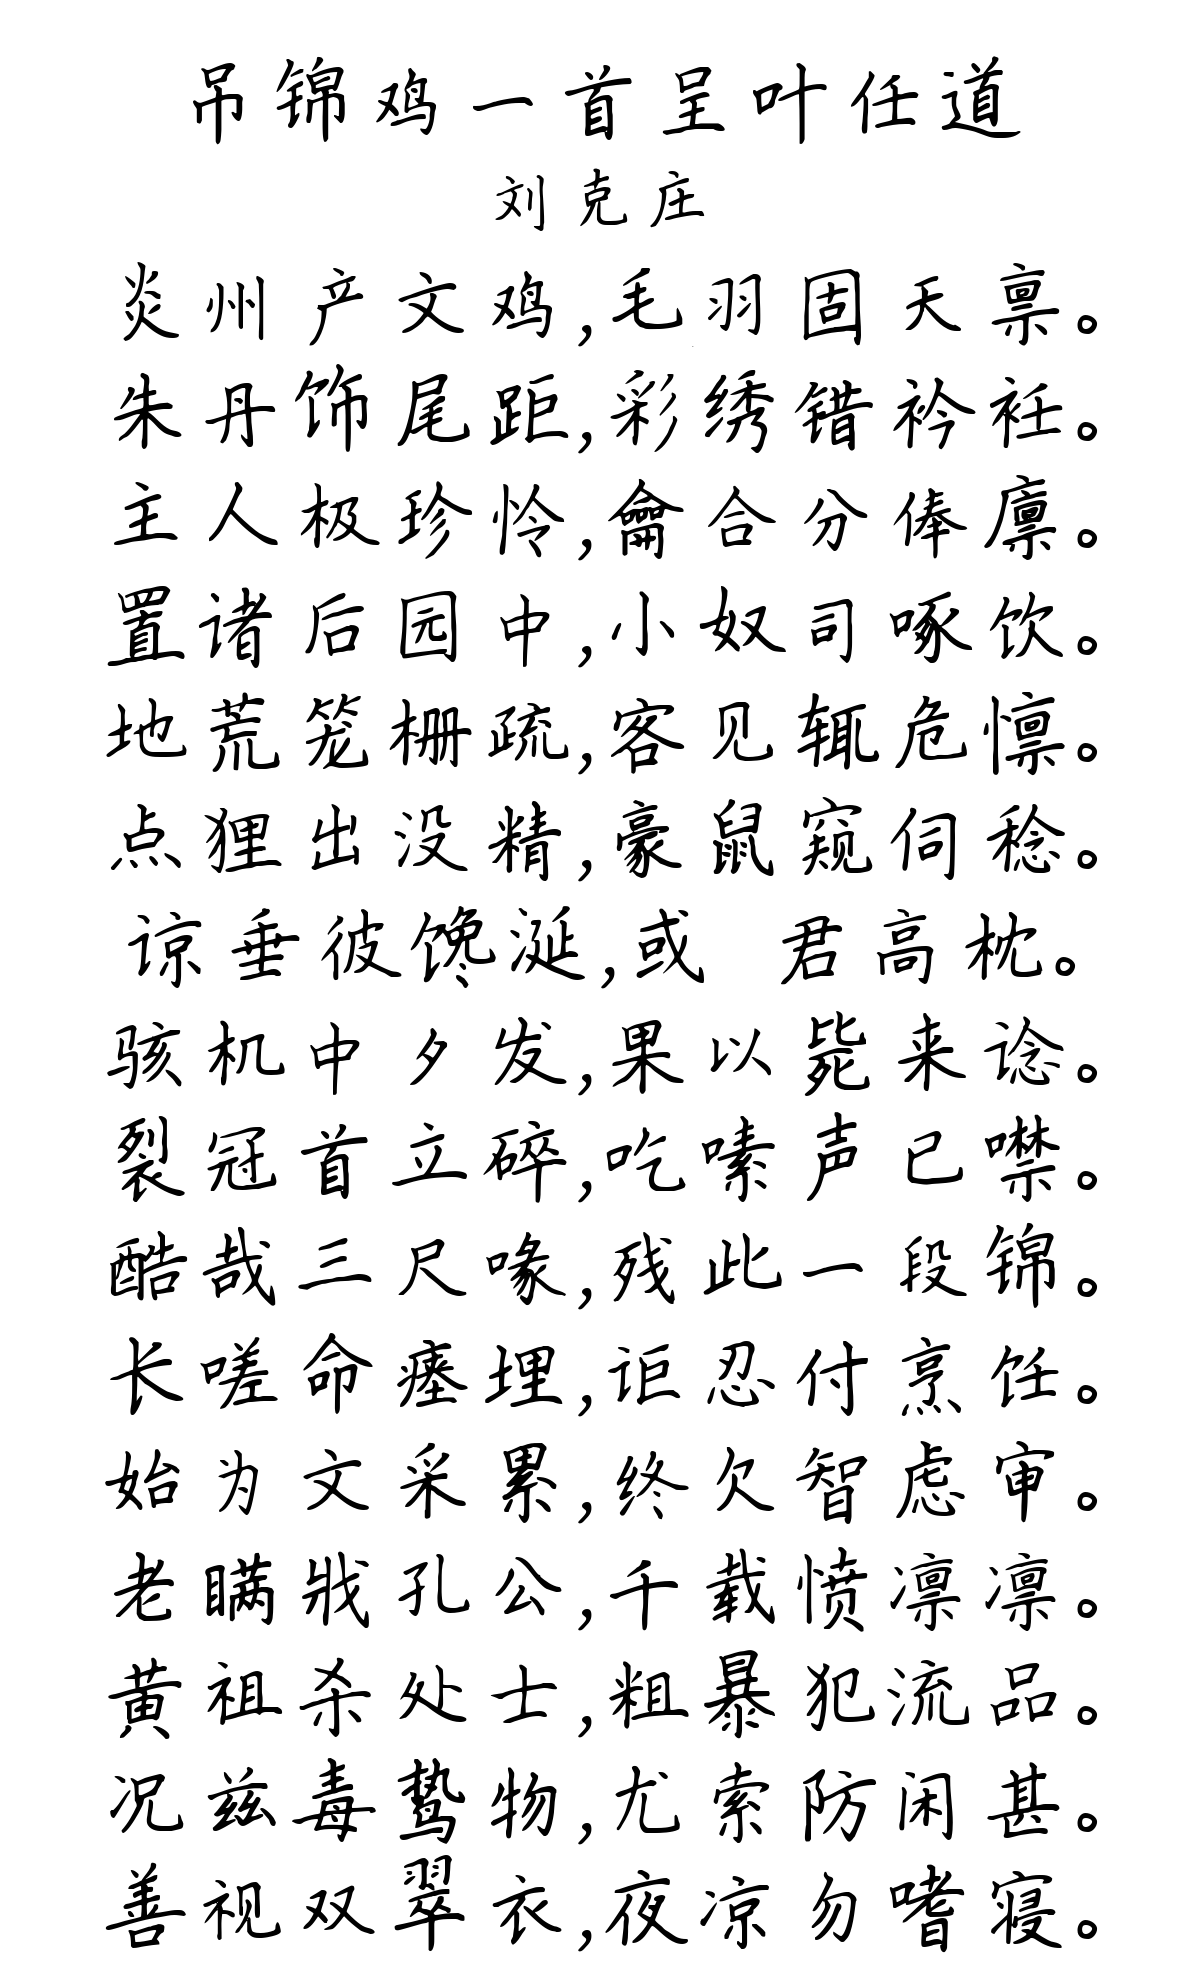 吊锦鸡一首呈叶任道
刘克庄
炎州产文鸡,毛羽固天禀。
朱丹饰尾距,彩绣错衿衽。
主人极珍怜,龠合分俸廪。
置诸后园中,小奴司啄饮。
地荒笼栅疏,客见辄危懔。
点狸出没精,豪鼠窥伺稔。
谅垂彼馋涎,或 君高枕。
骇机中夕发,果以毙来谂。
裂冠首立碎,吃嗉声已噤。
酷哉三尺喙,残此一段锦。
长嗟命瘗埋,讵忍付烹饪。
始为文采累,终欠智虑审。
老瞒戕孔公,千载愤凛凛。
黄祖杀处士,粗暴犯流品。
况兹毒鸷物,尤索防闲甚。
善视双翠衣,夜凉勿嗜寝。